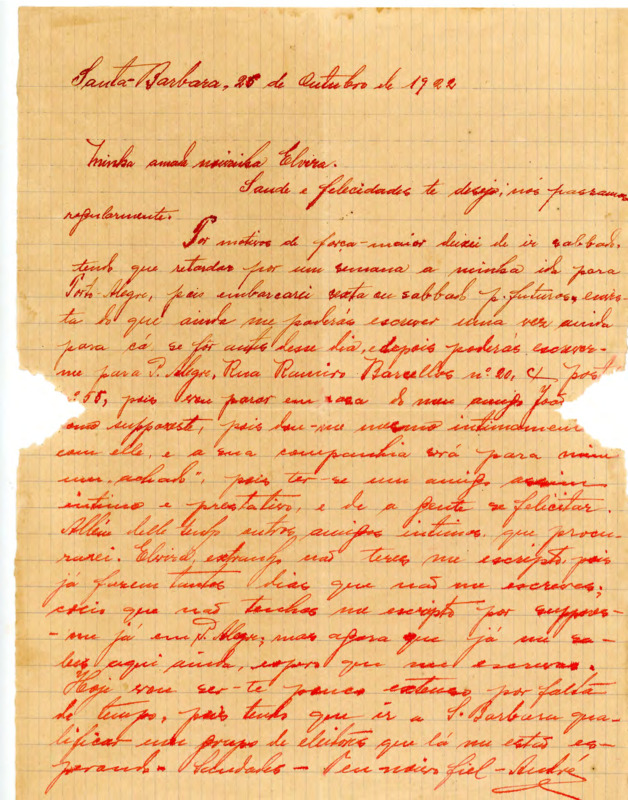 Santa-Barbara, 25 de Outubro de 1922
Minha amada noivinha Elvira.
Saude e felecidades te desejo; nós passamos
regularmente.
Por motivos de força-maior deixei de ir sabbado,
tendo que retardar por um semana a minha ida para
Porto-Alegre, pois embarcarei sexta ou sabbado p. futuros, em vis-
ta do que ainda me poderás escrever uma vez ainda
para cá, se fôr antes desse dia, e depois poderás escrever-
me para P. Alegre, Rua Ramiro Barcellos nº 20, post
58, pois vou parar em casa do meu amigo João
como suppoeste, pois dou-me mesmo intimamen
com elle, e a sua companhia será para mim
um "achado", pois ter-se um amigo assim
intimo e prestativo, e de a gente se felicitar.
Allém delle tenho outros amigos intimos, que procu-
rarei. Elvira, extranho não teres me escripto, pois
já fazem tantos dias que não me escreves;
creio que não tenhas me escripto por suppores-
-me já em P. Alegre, mas agora que já me sa-
bes aqui ainda, espero que me escrevas.
Hoje vou ser-te pouco extenso por falta
de tempo, pois tenho que ir a S. Barbara qua-
lificar um grupo de eleitores que lá me estão es-
perando. Saudades - Teu noivo fiel - André